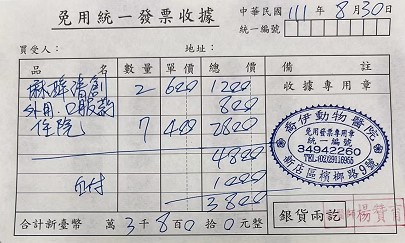 免用統一發票收據
中華民國 111 年 8 月 30 日
統一編號
買受人： 地址：
品名 數量 單價 總價 備註
麻醉清創 2 600 1200
外用.口服藥 800
住院 7 400 2800
4800
自付 1000
3800
收據專用章
喬伊動物醫院
免用發票專用章
統一編號
34942260
TEL:(02)29116955
新店區檳榔路9號
合計新臺幣 萬 3 仟 8 百 0 拾 0 元整
銀貨兩訖